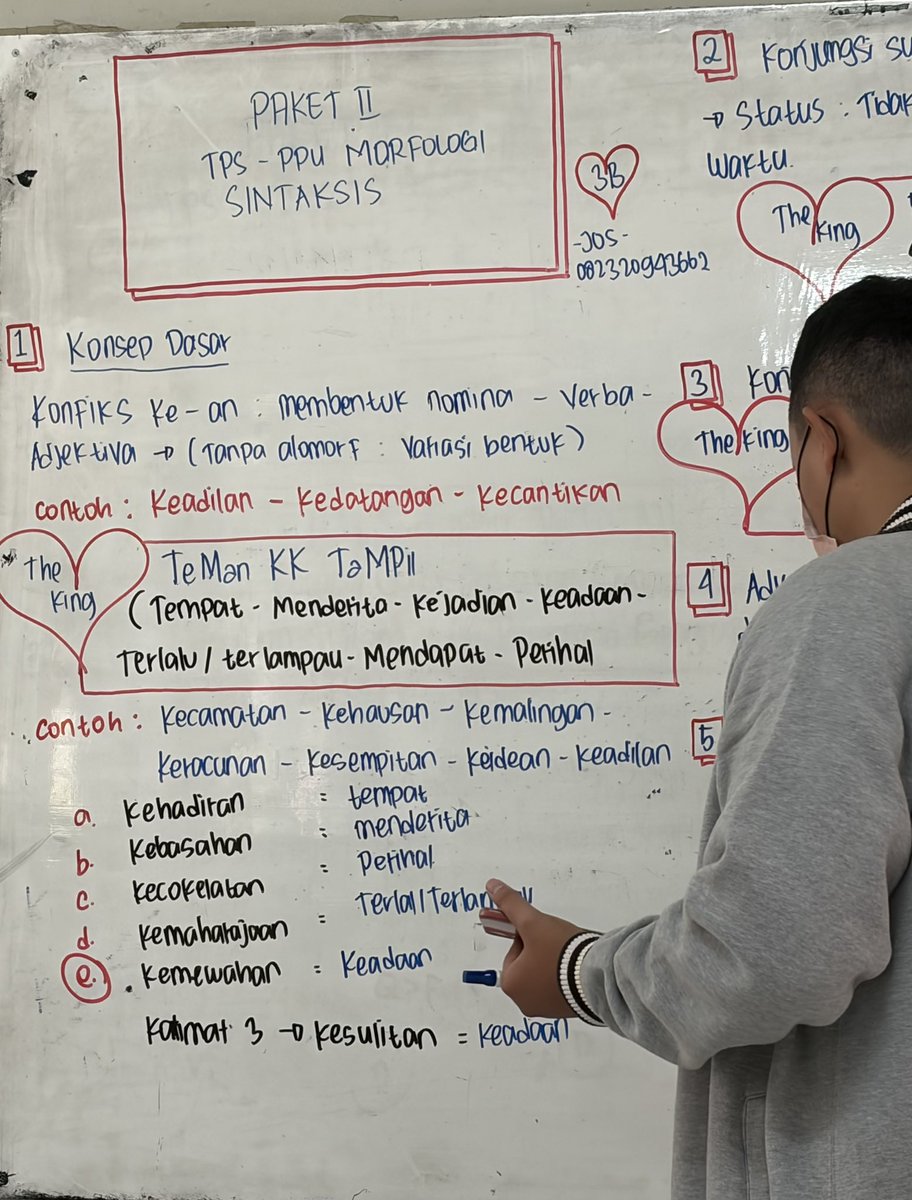 PAKET II
TPS - PPU MORFOLOGI
SINTAKSIS
3B
-JOS-
082320943662
1 Konsep Dasar
Konfiks Ke-an : membentuk nomina - Verba -
Adjektiva → (Tanpa alomorf : Variasi bentuk)
contoh : Keadilan - Kedatangan - Kecantikan
The King
TeMan KK TaMPil
(Tempat - Menderita - Kejadian - Keadaan -
Terlalu / terlampau - Mendapat - Perihal
contoh : Kecamatan - Kehausan - Kemalingan -
Keracunan - Kesempitan - Keidean - Keadilan
a. Kehadiran = tempat
b. Kebasahan = menderita
c. Kecokelatan = Perihal
d. Kemaharajaan =
e. Kemewahan = Keadaan
Kalimat 3 → Kesulitan = Keadaan
2 Konjungsi
→ Status :
waktu.
The King
3
The King
4
5